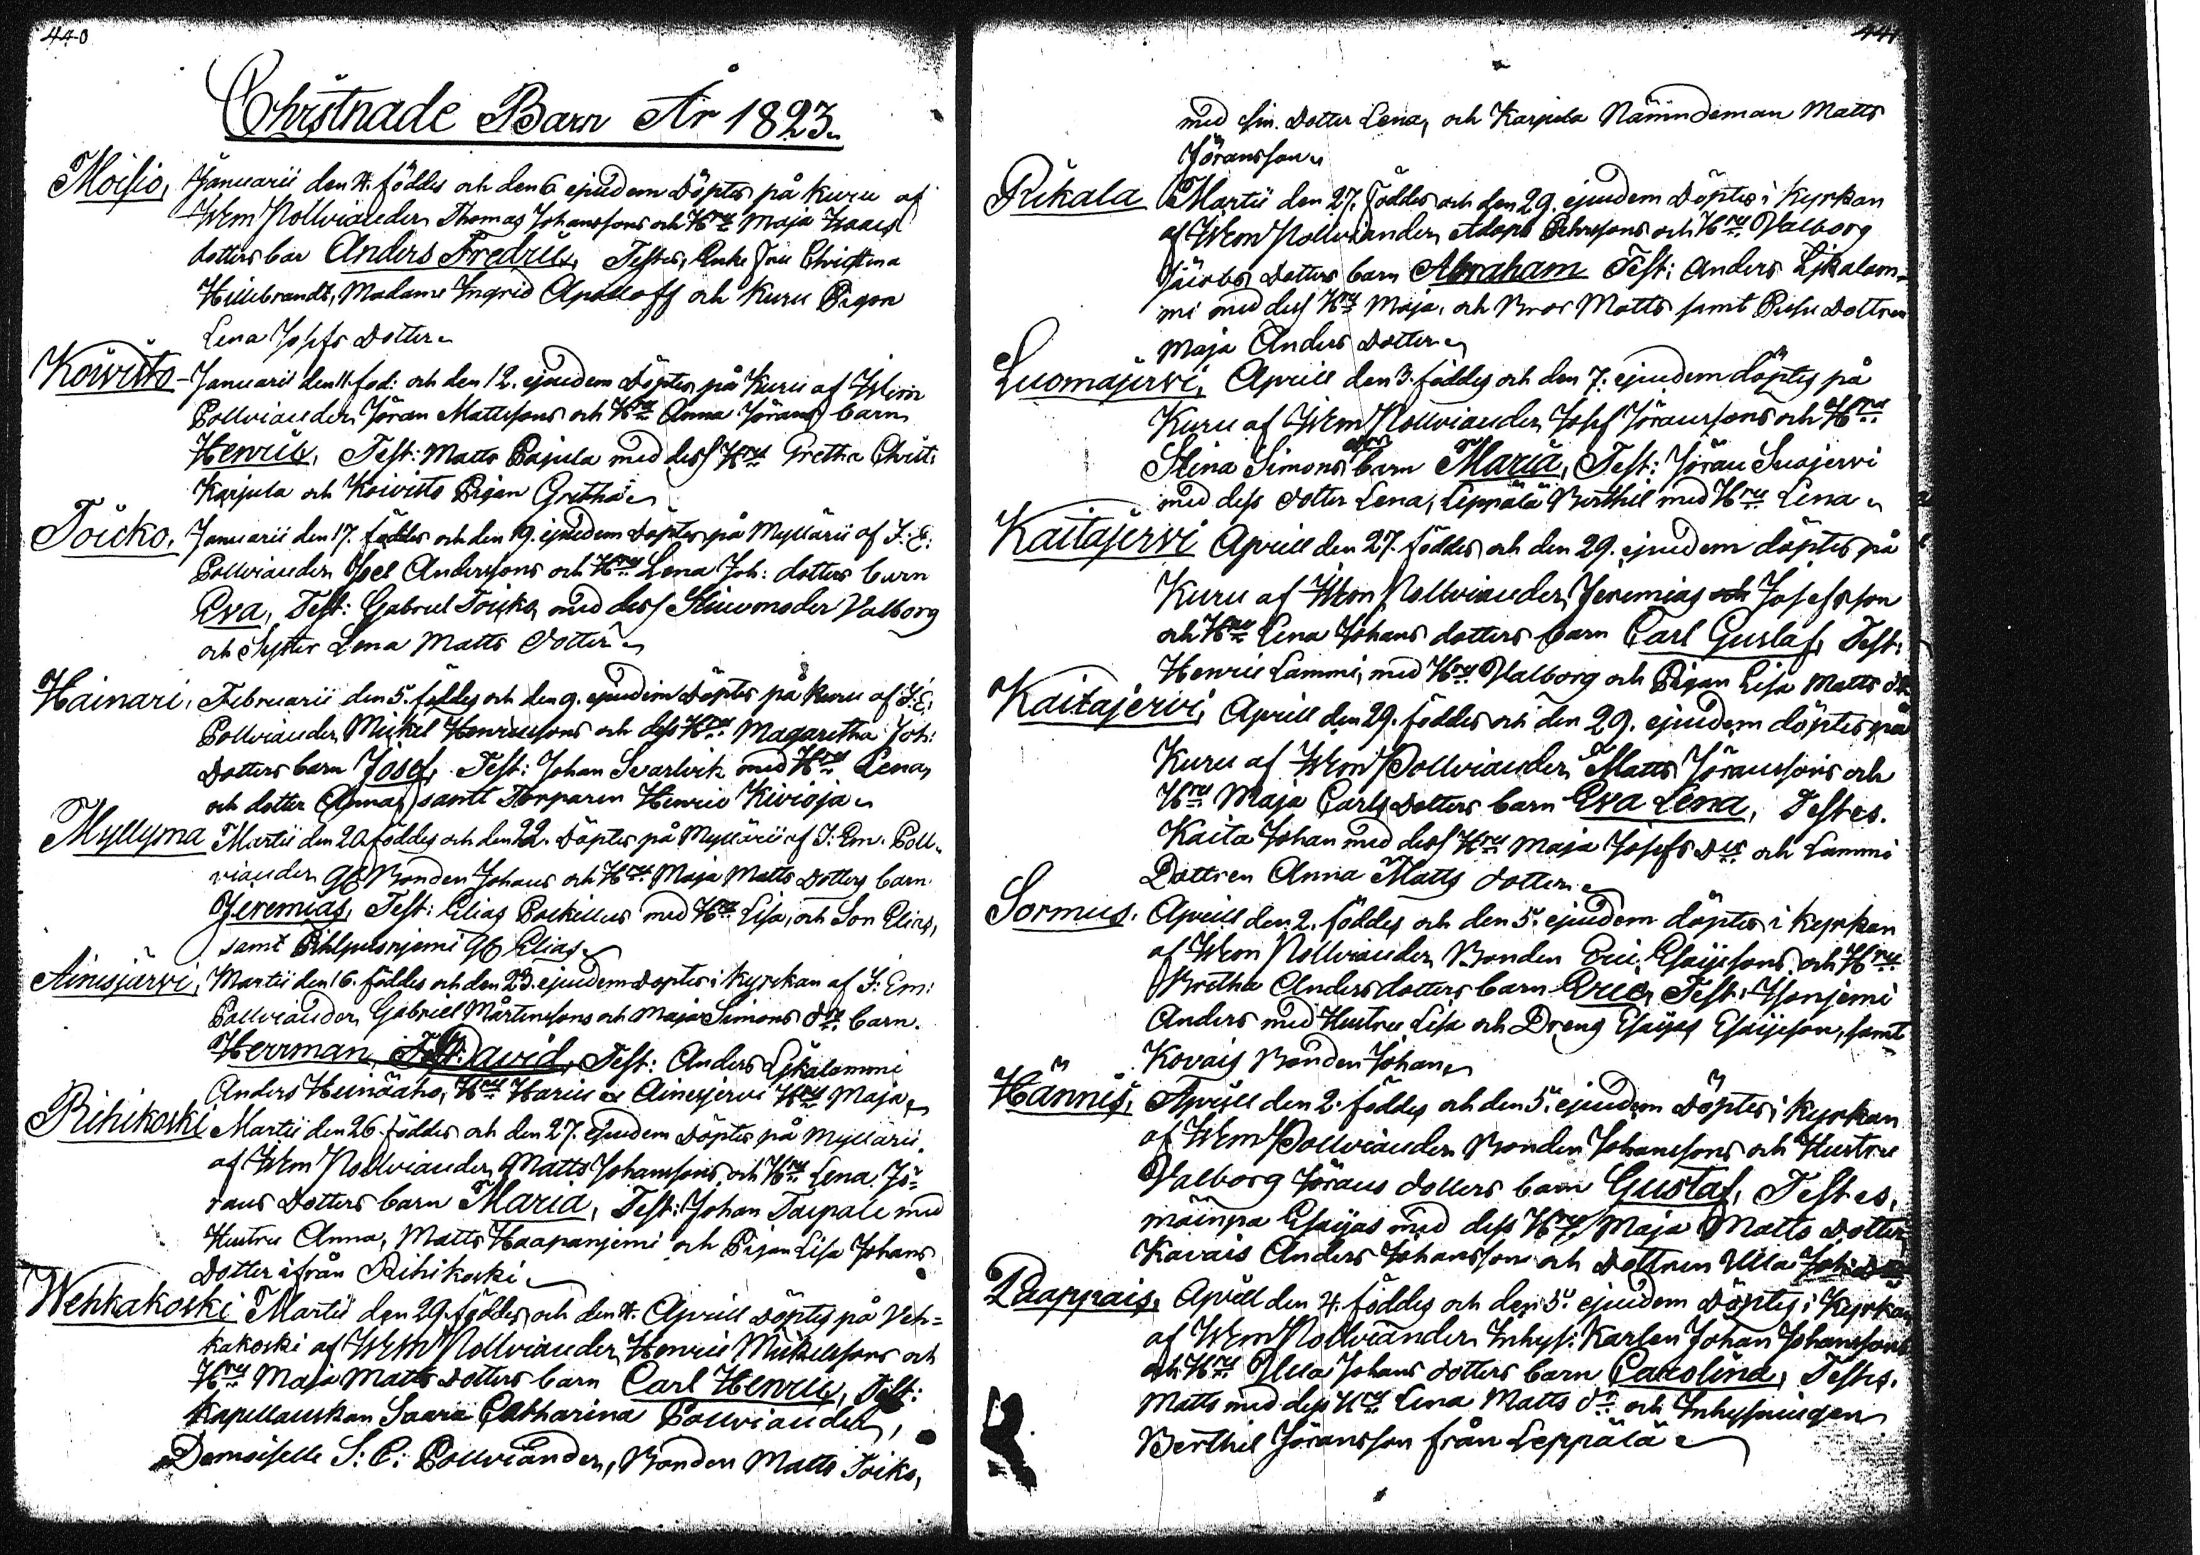 440
Christnade Barn År 1823.
Moisio, Januarii den 4. föddes och den 6 ejusdem Döptes på Kuru af
Wkm Pollviander, Thomas Johanssons och Hru Maja Isaacs
dotters bar Anders Fredric, Testes, Enke Fru Christina
Hillebrandt, Madame Ingrid Apolloff och Kuru Pigan
Lena Josefs Dotter
Koivisto Januarii den 11. föd: och den 12. ejusdem Döptes på Kuru af Wkm
Pollviander, Jöran Mattssons och Hru Anna Jörans barn
Henric, Test: Matts Pajula med dess Hru Gretha Christ:
Karjula och Koivisto Pigan Gretha
Toicko, Januarii den 17. föddes och den 19. ejusdem Döptes på Myllärii af I: E:
Pollviander, Joel Anderssons och Hru Lena Joh: dotters barn
Eva, Test: Gabriel Toicko, med dess Stiuvmoder Valborg
och Syster Lena Matts Dotter
Hainari, Februarii den 5. föddes och den 9. ejusdem Döptes på Kuru af I: E:
Pollviander, Mickel Henricssons och dess Hru Magaretha Joh:
Dotters barn Josef, Test: Johan Svartvik med Hru Lena,
och dotter Anna, samt Torparen Henric Kivioja
Myllyma Martii den 20 föddes och den 22. Döptes på Myllärii af I: Em. Poll-
viander, Bonden Johans och Hru Maja Matts Dotters barn
Jeremias, Test: Elias Poikillus med Hru Lisa, och Son Elias,
samt Elias
Ainesjärvi, Martii den 16. föddes och den 23. ejusdem Döptes i Kyrckan af I: Em:
Pollviander, Gabriel Mårtenssons och Maja Simons dr barn.
Herrman, David, Test: Anders Ljkalammi
Anders Heinäaho, Hru et Ainesjervi Hru Maja
Rihikoski Martii den 26. föddes och den 27. ejusdem Döptes på Myllärii
af Wkm Pollviander, Matts Johanssons, och Hru Lena Jö-
rans Dotters barn Maria, Test: Johan Taipale med
Hustru Anna, Matts Haapanjemi och Pigan Lisa Johans
Dotter ifrån Rihikoski
Wehkakoski Martii den 29. föddes och den 4. Aprill Döptes på Veh-
kakoski af Wkm Pollviander, Henric Mickelssons och
Hru Maja Matts Dotters barn Carl Henric, Test:
Kapellanskan Saara Catharina Pollviander,
Demoiselle S: C: Pollviander, Bonden Matts Toiko,
441
med sin Dotter Lena, och Karjula Nämndeman Matts
Jöransson
Rikala Martii den 27. föddes och den 29. ejusdem Döptes i Kyrkan
af Wkm Pollviander, Adam Pehrssons och Hru Valborg
Jacobs Dotters barn Abraham Test: Anders Ljkalam-
mi med dess Hru Maja, och Bror Matts samt Dottren
Maja Anders Dotter
Luomajervi, Aprill den 3. föddes och den 7. ejusdem döptes på
Kuru af Wkm Pollviander, Josef Jöranssons och Hru
Stina Simons barn Maria, Test: Jöran Suojervi
med dess dotter Lena, Leppälä Berthil med Hru Lena
Kaitajervi Aprill den 27. föddes och den 29. ejusdem döptes på
Kuru af Wkm Pollviander, Jeremias och Josefsson
och Hru Lena Johans dotters barn Carl Gustaf, Test:
Henric Lammi, med Hru Valborg och Pigan Lisa Matts dr
Kaitajervi, Aprill den 29. föddes och den 29. ejusdem döptes på
Kuru af Wkm Pollviander, Matts Jöranssons och
Hru Maja Carls Dotters barn Eva Lena, Testes.
Kaita Johan med dess Hru Maja Josefs Dr och Lammi
Dottren Anna Matts dotter
Sormus, Aprill den 2. föddes och den 5. ejusdem döptes i Kyrkan
af Wkm Pollviander Bonden Eric Esaijssons och Hru
Bretha Andersdotters barn Eric, Test:
Anders med Hustru Lisa och Dreng Esaijas Esaijsson, samt
Kovais Bonden Johan
Hännis, Aprill den 2. föddes och den 5. ejusdem Döptes i Kyrkan
af Wkm Pollviander Bonden Johanssons och Hustru
Valborg Jörans dotters barn Gustaf, Testes,
Esaijas med dess Hru Maja Matts Dotter,
Kavais Anders Johansson och Dottren Ulla Joh:
Paappais, Aprill den 4. föddes och den 5. ejusdem Döptes i Kyrkan
af Wkm Pollviander Inhys: Karlen Johan Johanssons
och Hru Ulla Johans dotters barn Carolina, Testes.
Matts med dess Hru Lena Matts dr och Inhysningen
Berthil Jöransson från Leppälä